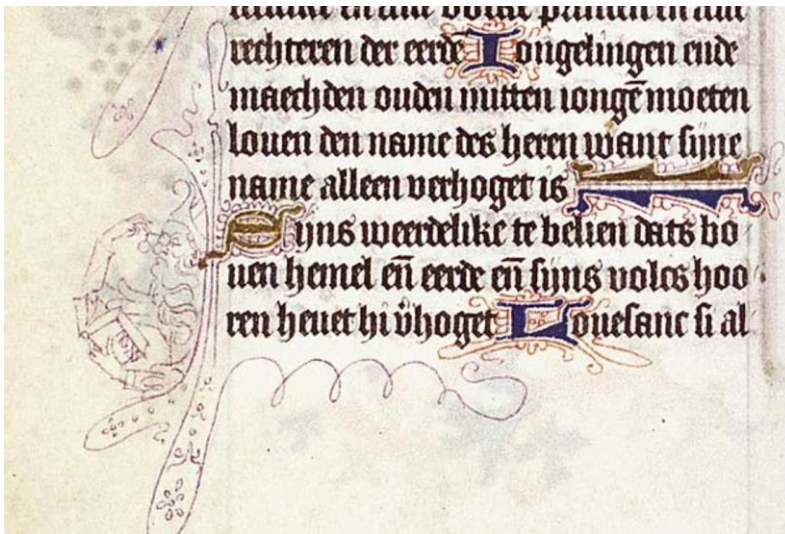 rechteren der eerdē Iongelingen ende
maechden ouden mitten iongē moeten
louen den name des heren want sijne
name alleen verhoget is
Sijns weerdelike te belien dats bo
uen hemel eñ eerde eñ sijns volcs hoo
ren heuet hi v̄hoget Louesanc si al